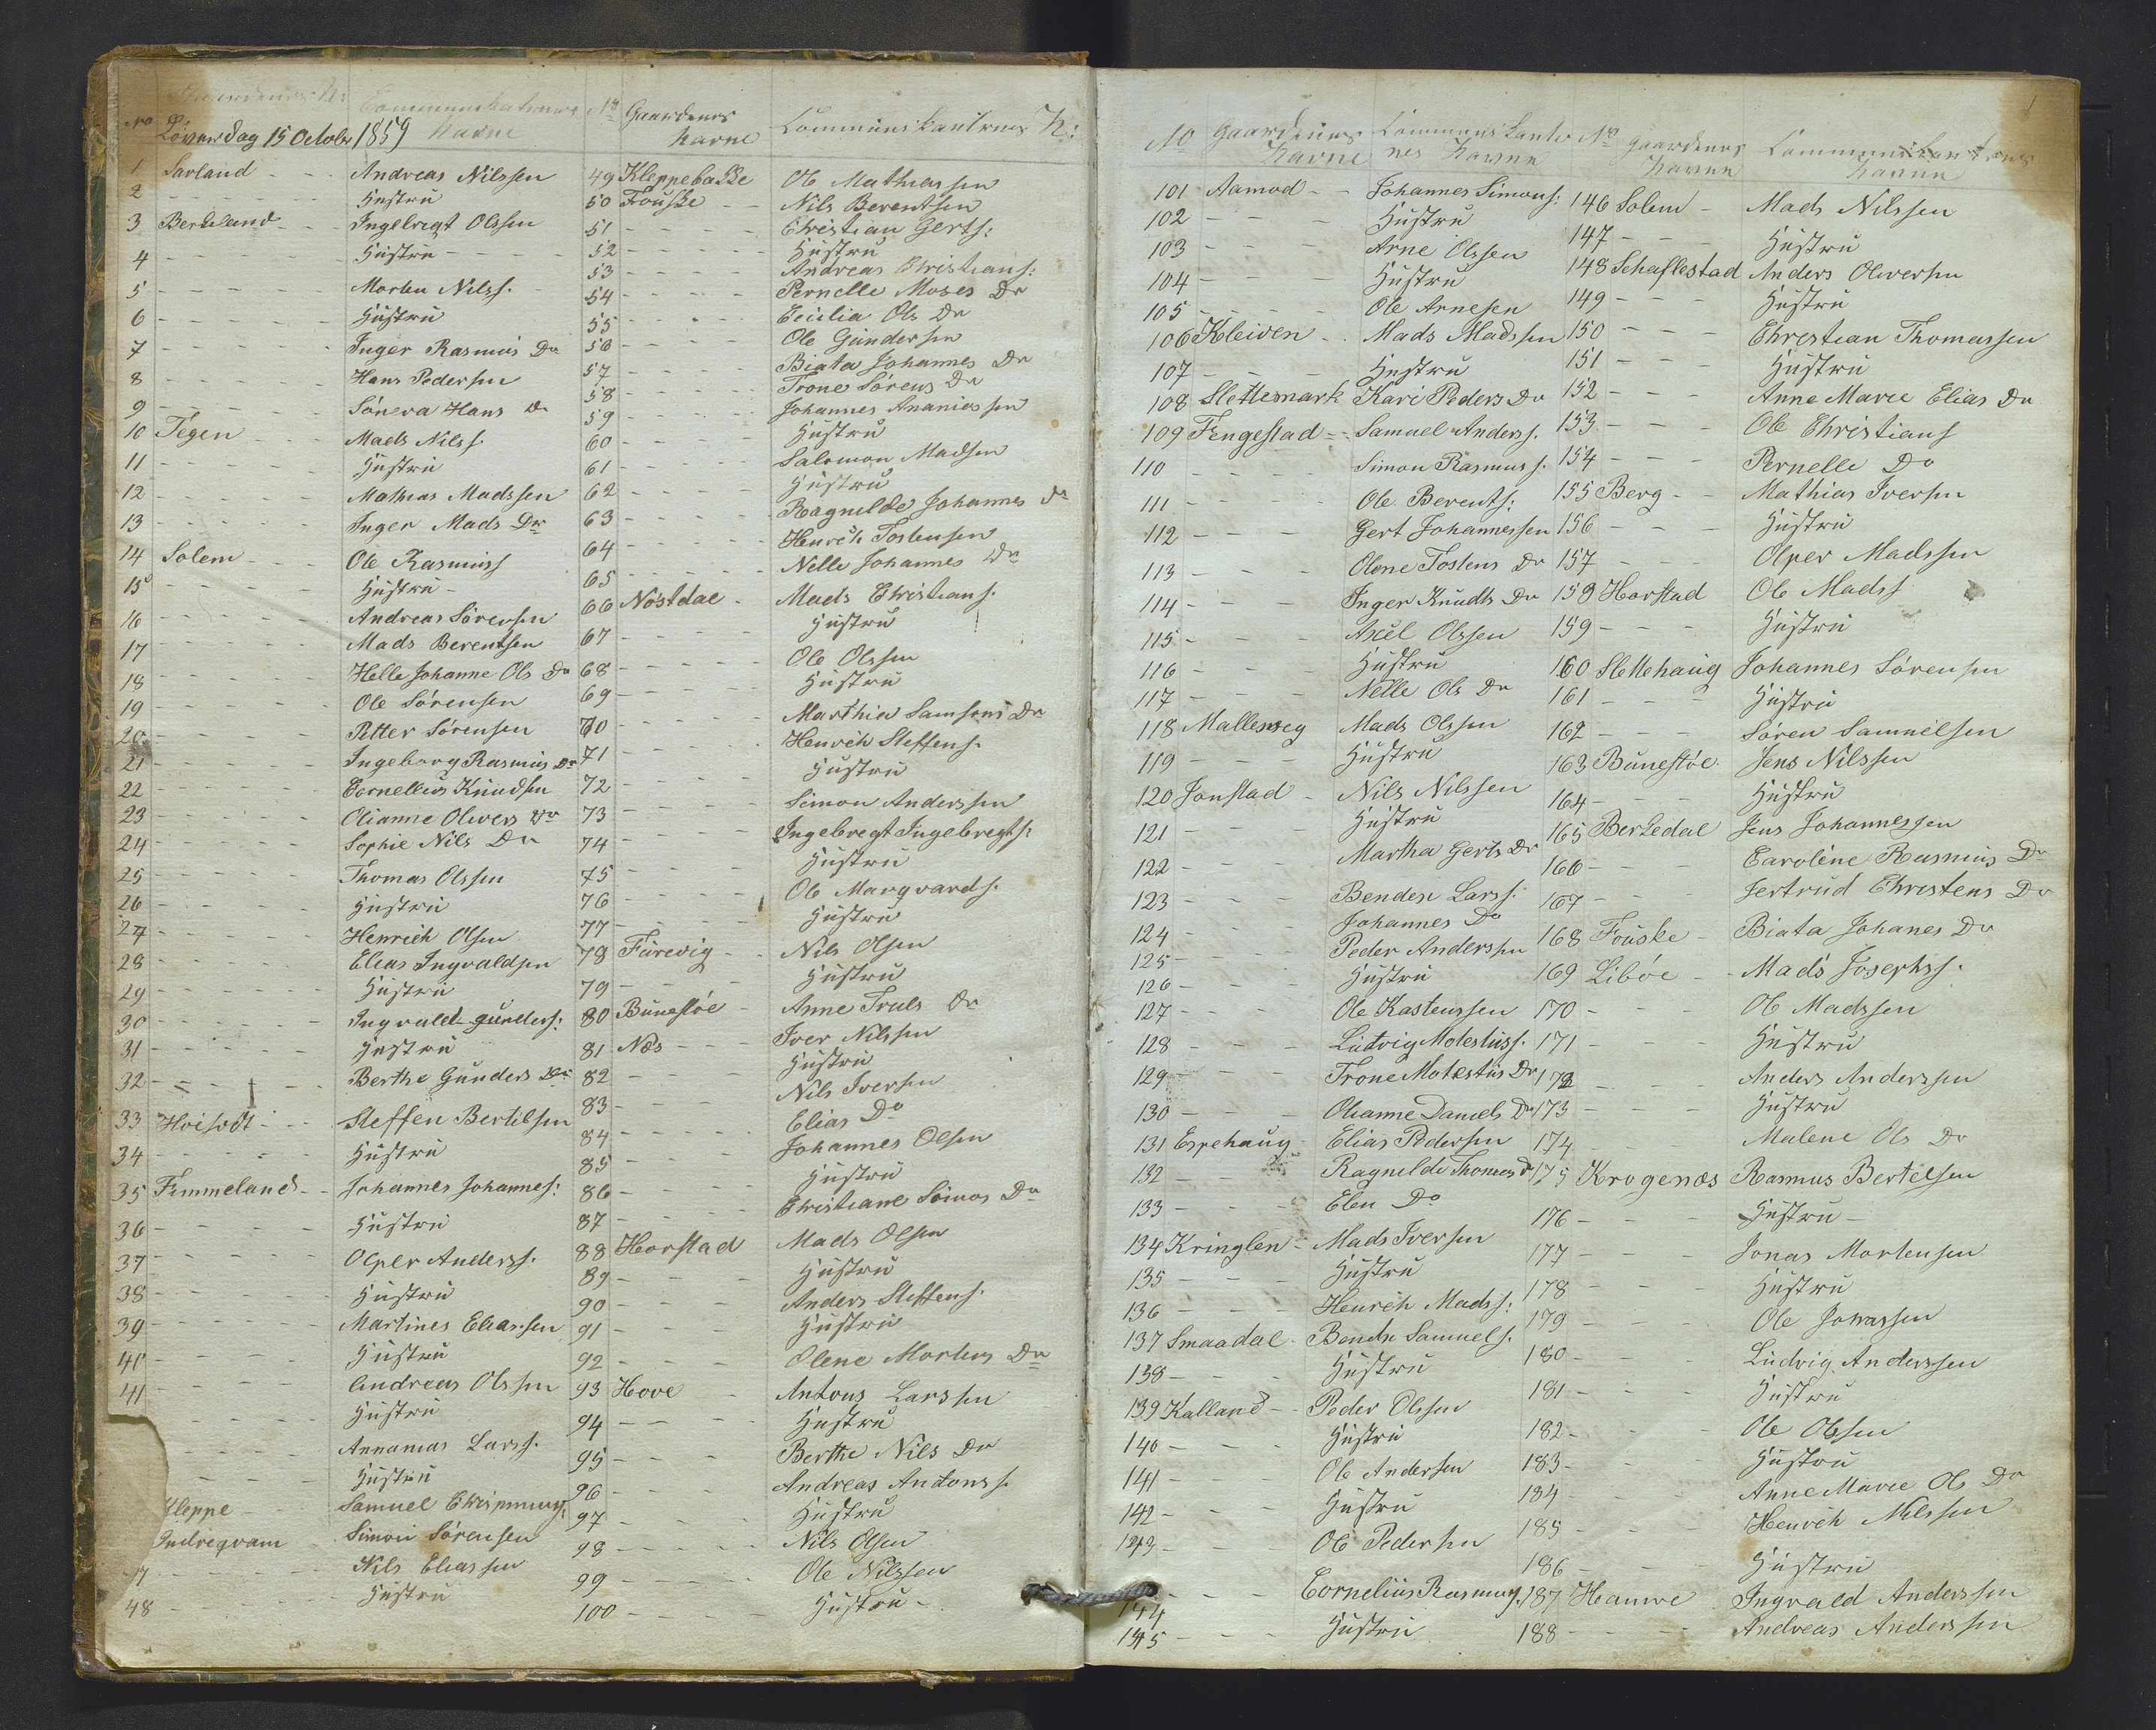 No Gaardenes N: Communikanternes Navne
Löverdag 15 Octobr 1859
1 Sarland - - Andreas Nilssen
2 - - - - Hustru
3 Berkeland - - Ingebregt Olssen
4 - - - - Hustru - - -
5 - - - - Morten Nilss.
6 - - - - Hustru
7 - - - - Inger Rasmus Dr
8 - - - - Hans Pedersen
9 - - - - Söneva Hans Dr
10 Tegen - - Mads Nilss.
11 - - - - Hustru
12 - - - - Mathias Madssen
13 - - - - Inger Mads Dr
14 Solem - - - Ole Rasmuss
15 - - - - Hustru -
16 - - - - Andreas Sörensen
17 - - - - Mads Berentsen
18 - - - - Helle Johanne Ols Dr
19 - - - - Ole Sörensen
20 - - - - Petter Sörensen
21 - - - - Ingeborg Rasmus Dr
22 - - - - Cornelius Knudsen
23 - - - - Olianne Olvers Dr
24 - - - - Sophie Nils Dr
25 - - - - Thomas Olssen
26 - - - - Hustru
27 - - - - Henrich Olsen
28 - - - - Elias Ingvaldsen
29 - - - - Hustru
30 - - - - Ingvald Gunders:
31 - - - - Hustru
32 - - - - Berthe Gunders Dr
33 - - Steffen Bertelsen
34 - - - - Hustru
35 Femmeland - - Johannes Johanness:
36 - - - - Hustru
37 - - - - Olper Anderss.
38 - - - - Hustru
39 - - - - Martines Eliassen
40 - - - - Hustru
41 - - - - Andreas Olssen
- - - Hustru
Annanias Larss.
- - - Hustru
Kleppe - Samuel
Indreqvam Simon Sörensen
7 - - - - Nils Eliassen
48 - - - - Hustru
No Gaardenes Navne Communikanternes N:
49 Kleppebakke Ole Mathiassen
50 Fouske - - Nils Berentsen
51 - - - - Christian Gerts:
52 - - - - Hustru
53 - - - - Andreas Christians:
54 - - - - Pernelle Moses Dr
55 - - - - Cecilia Ols Dr
56 - - - - Ole Gundersen
57 - - - - Biata Johannes Dr
58 - - - - Trone Sörens Dr
59 - - - - Johannes Ananiassen
60 - - - - Hustru
61 - - - - Salomon Madsen
62 - - - - Hustru
63 - - - - Ragnilde Johannes Dr
64 - - - - Henrich Tostensen
65 - - - - Nille Johannes Dr
66 Nöstdal - Mads Christians.
67 - - - - Hustru
68 - - - - Ole Olssen
69 - - - - Hustru
70 - - - - Marthia Samsons Dr
71 - - - - Henrich Steffens.
72 - - - - Hustru
73 - - - - Simon Anderssen
74 - - - - Ingebregt Ingebregts:
75 - - - - Hustru
76 - - - - Ole Marqvards.
77 - - - - Hustru
78 Furevig - - Nils Olsen
79 - - - - Hustru
80 Bunestöe - Anne Truls Dr
81 Nes - - - Iver Nilssen
82 - - - - Hustru
83 - - - - Nils Iversen
84 - - - - Elias Do
85 - - - - Johannes Olsen
86 - - - - Hustru
87 - - - - Christiane Simos Dr
88 Horstad Mads Olsen
89 - - - Hustru
90 - - - Anders Steffens.
91 - - - Hustru
92 - - - Olene Mortens Dr
93 Hove - Antons Larssen
94 - - - - Hustru
95 - - - Berthe Nils Dr
96 - - - Andreas Antonss.
97 - - - - Hustru
98 - - - - Nils Olsen
99 - - - - Ole Nilssen
100 - - - - Hustru -
1
No Gaardenes Navne Communikanternes Navne
101 Aamod - - Johannes Simons:
102 - - - Hustru
103 - - - Arne Olssen
104 - - - Hustru
105 - - - Ole Arnesen
106 Kleiven - Mads Madssen
107 - - - Hustru
108 Slettemark Kari Peders Dr
109 Fengestad - Samuel Anderss.
110 - - - Simon Rasmuss.
111 - - - Ole Berents:
112 - - - Gert Johannessen
113 - - - Olene Tostens Dr
114 - - - Inger Knudts Dr
115 - - - Axel Olssen
116 - - - Hustru
117 - - - Nille Ols Dr
118 Mallesveg Mads Olssen
119 - - - Hustru
120 Jonstad - Nils Nilssen
121 - - - Hustru
122 - - - Martha Gerts Dr
123 - - - Bendex Larss:
124 - - - Johannes Do
125 - - - Peder Anderssen
126 - - - Hustru
127 - - - Ole Kastenssen
128 - - - Ludvig Motestuss.
129 - - - Trone Motestus Dr
130 - - - Olianne Daniels Dr
131 Espehaug - Elias Pedersen
132 - - - Ragnilde Thomas Dr
133 - - - Elen Do
134 Kringlen - Mads Iversen
135 - - - Hustru
136 - - - Henrich Madss:
137 Smaadal - Bendix Samuels.
138 - - - Hustru
139 Kalland - - Peder Olssen
140 - - - Hustru
141 - - - Ole Andersen
142 - - - Hustru
143 - - - Ole Pedersen
144 - - - Cornelius Rasmuss.
145 - - - Hustru
No Gaardenes Navne Communikanternes Navne
146 Solem - Mads Nilssen
147 - - - Hustru
148 Schaflestad Anders Olversen
149 - - - Hustru
150 - - - Christian Thomassen
151 - - - Hustru
152 - - - Anne Marie Elias Dr
153 - - - Ole Christians
154 - - - Pernelle Do
155 Berg - - Mathias Iversen
156 - - - Hustru
157 - - - Olper Madssen
158 Horstad Ole Madss
159 - - - Hustru
160 Slettehaug Johannes Sörensen
161 - - - Hustru
162 - - - Sören Samuelsen
163 Bunestöe. Jens Nilssen
164 - - - Hustru
165 Berkedal Jens Johannessen
166 - - - Caroline Rasmus Dr
167 - - - Jertrud Christens Dr
168 Fouske - Biata Johanes Dr
169 Liböe - - Mads Josephss.
170 - - - Ole Madssen
171 - - - Hustru
172 - - - Anders Anderssen
173 - - - Hustru
174 - - - Malene Ols Dr
175 Krogenæs Rasmus Bertelsen
176 - - - Hustru -
177 - - - Jonas Mortensen
178 - - - Hustru
179 - - - Ole Jonassen
180 - - - Ludvig Anderssen
181 - - - Hustru
182 - - - Ole Olssen
183 - - - Hustru
184 - - - Anne Marie Ols Dr
185 - - - Henrich Nilssen
186 - - - Hustru
187 Hamre Ingvald Anderssen
188 - - - Andreas Anderssen